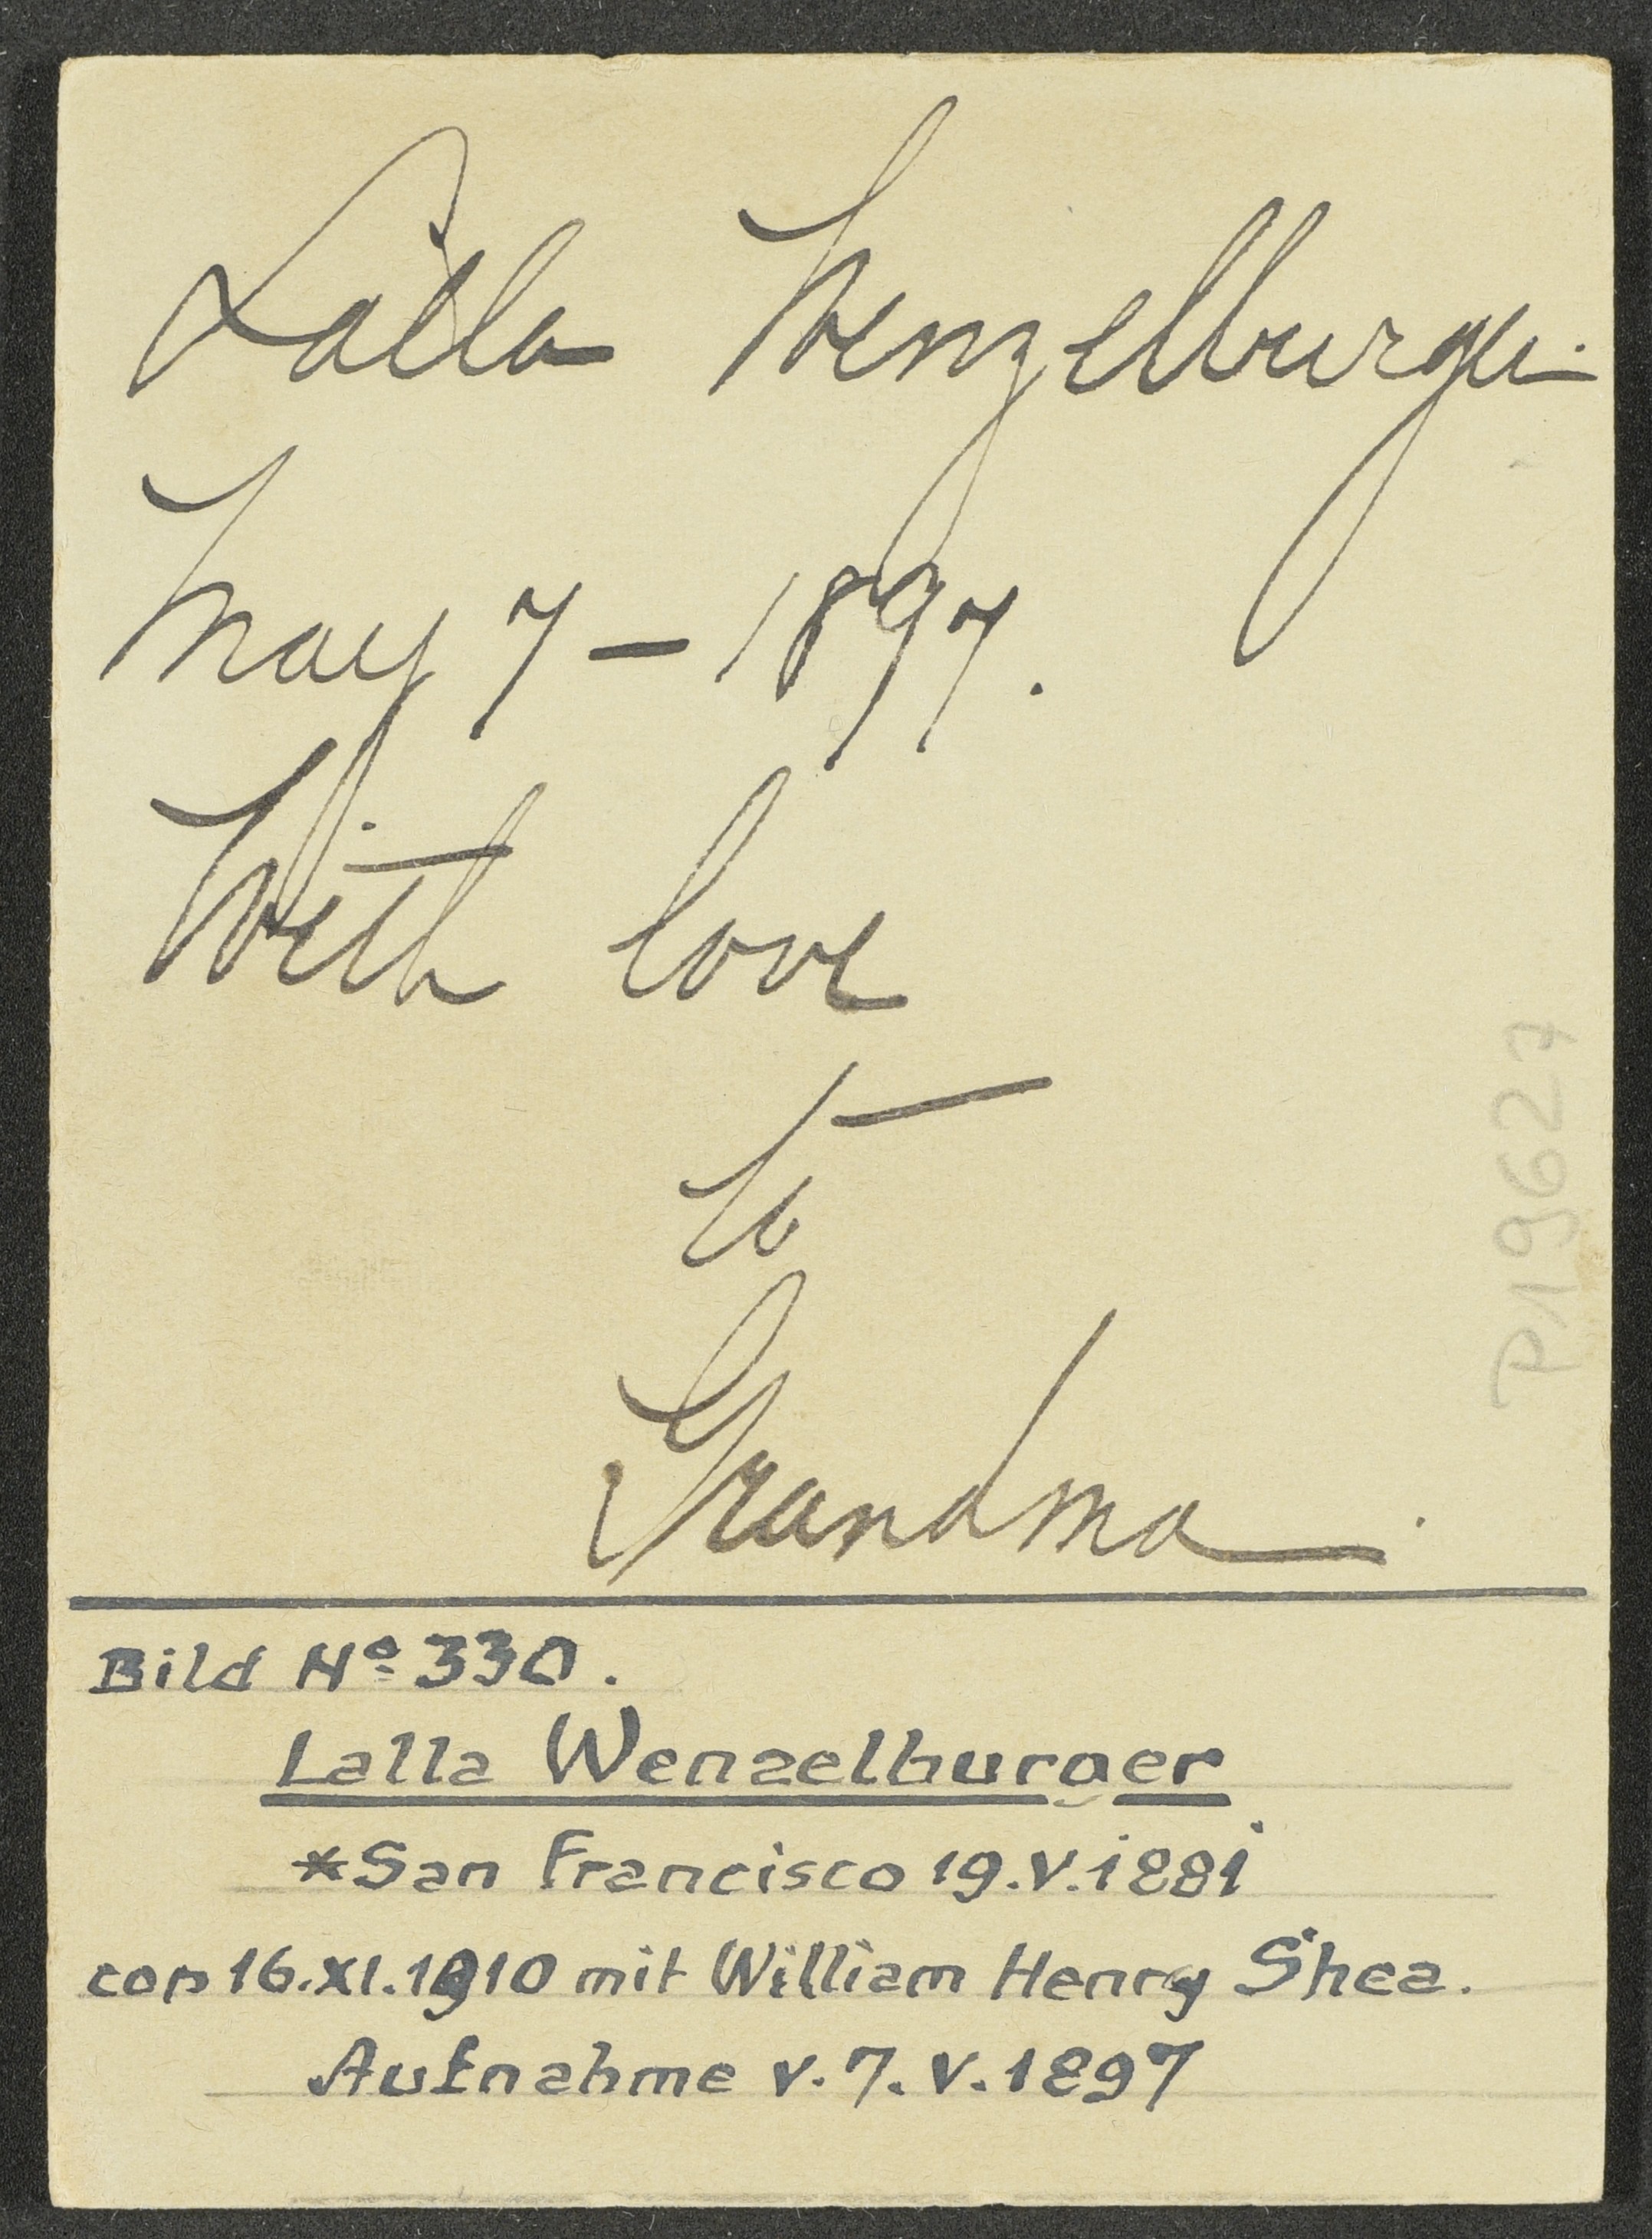 Lalla Wenzelburger.
May 7 – 1897.
With love
to
Grandma.
P19627
Bild Nº 330.
Lalla Wenzelburger
*San Francisco 19.V.1881
cop 16.XI.1910 mit William Henry Shea.
Aufnahme v. 7. V. 1897